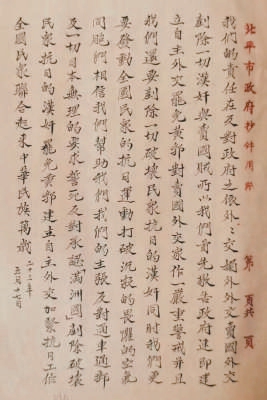 北平市政府抄件用紙 第 頁共 頁
我們的責任在反對政府之依外々交媚外外交賣國外交
剷除一切漢奸與賣國賊所以我們首先報告政府速即建
立自主外交罷免黃郛對賣國外交家作一嚴重警戒并且
我們還要剷除一切破壞民衆抗日的漢奸同時我們更
要發動全國民衆的抗日運動打破沉寂的畏懼的空氣
同胞們相信我們幫助我們我們的主張反對通車通郵
及一切日本無理的要求誓死反對承認「滿洲國」剷除破壞
民衆抗日的漢奸罷免黃郛建立自主外交加緊抗日工作
全國民衆聯合起來中華民族萬歲
二十三年
五月十七日